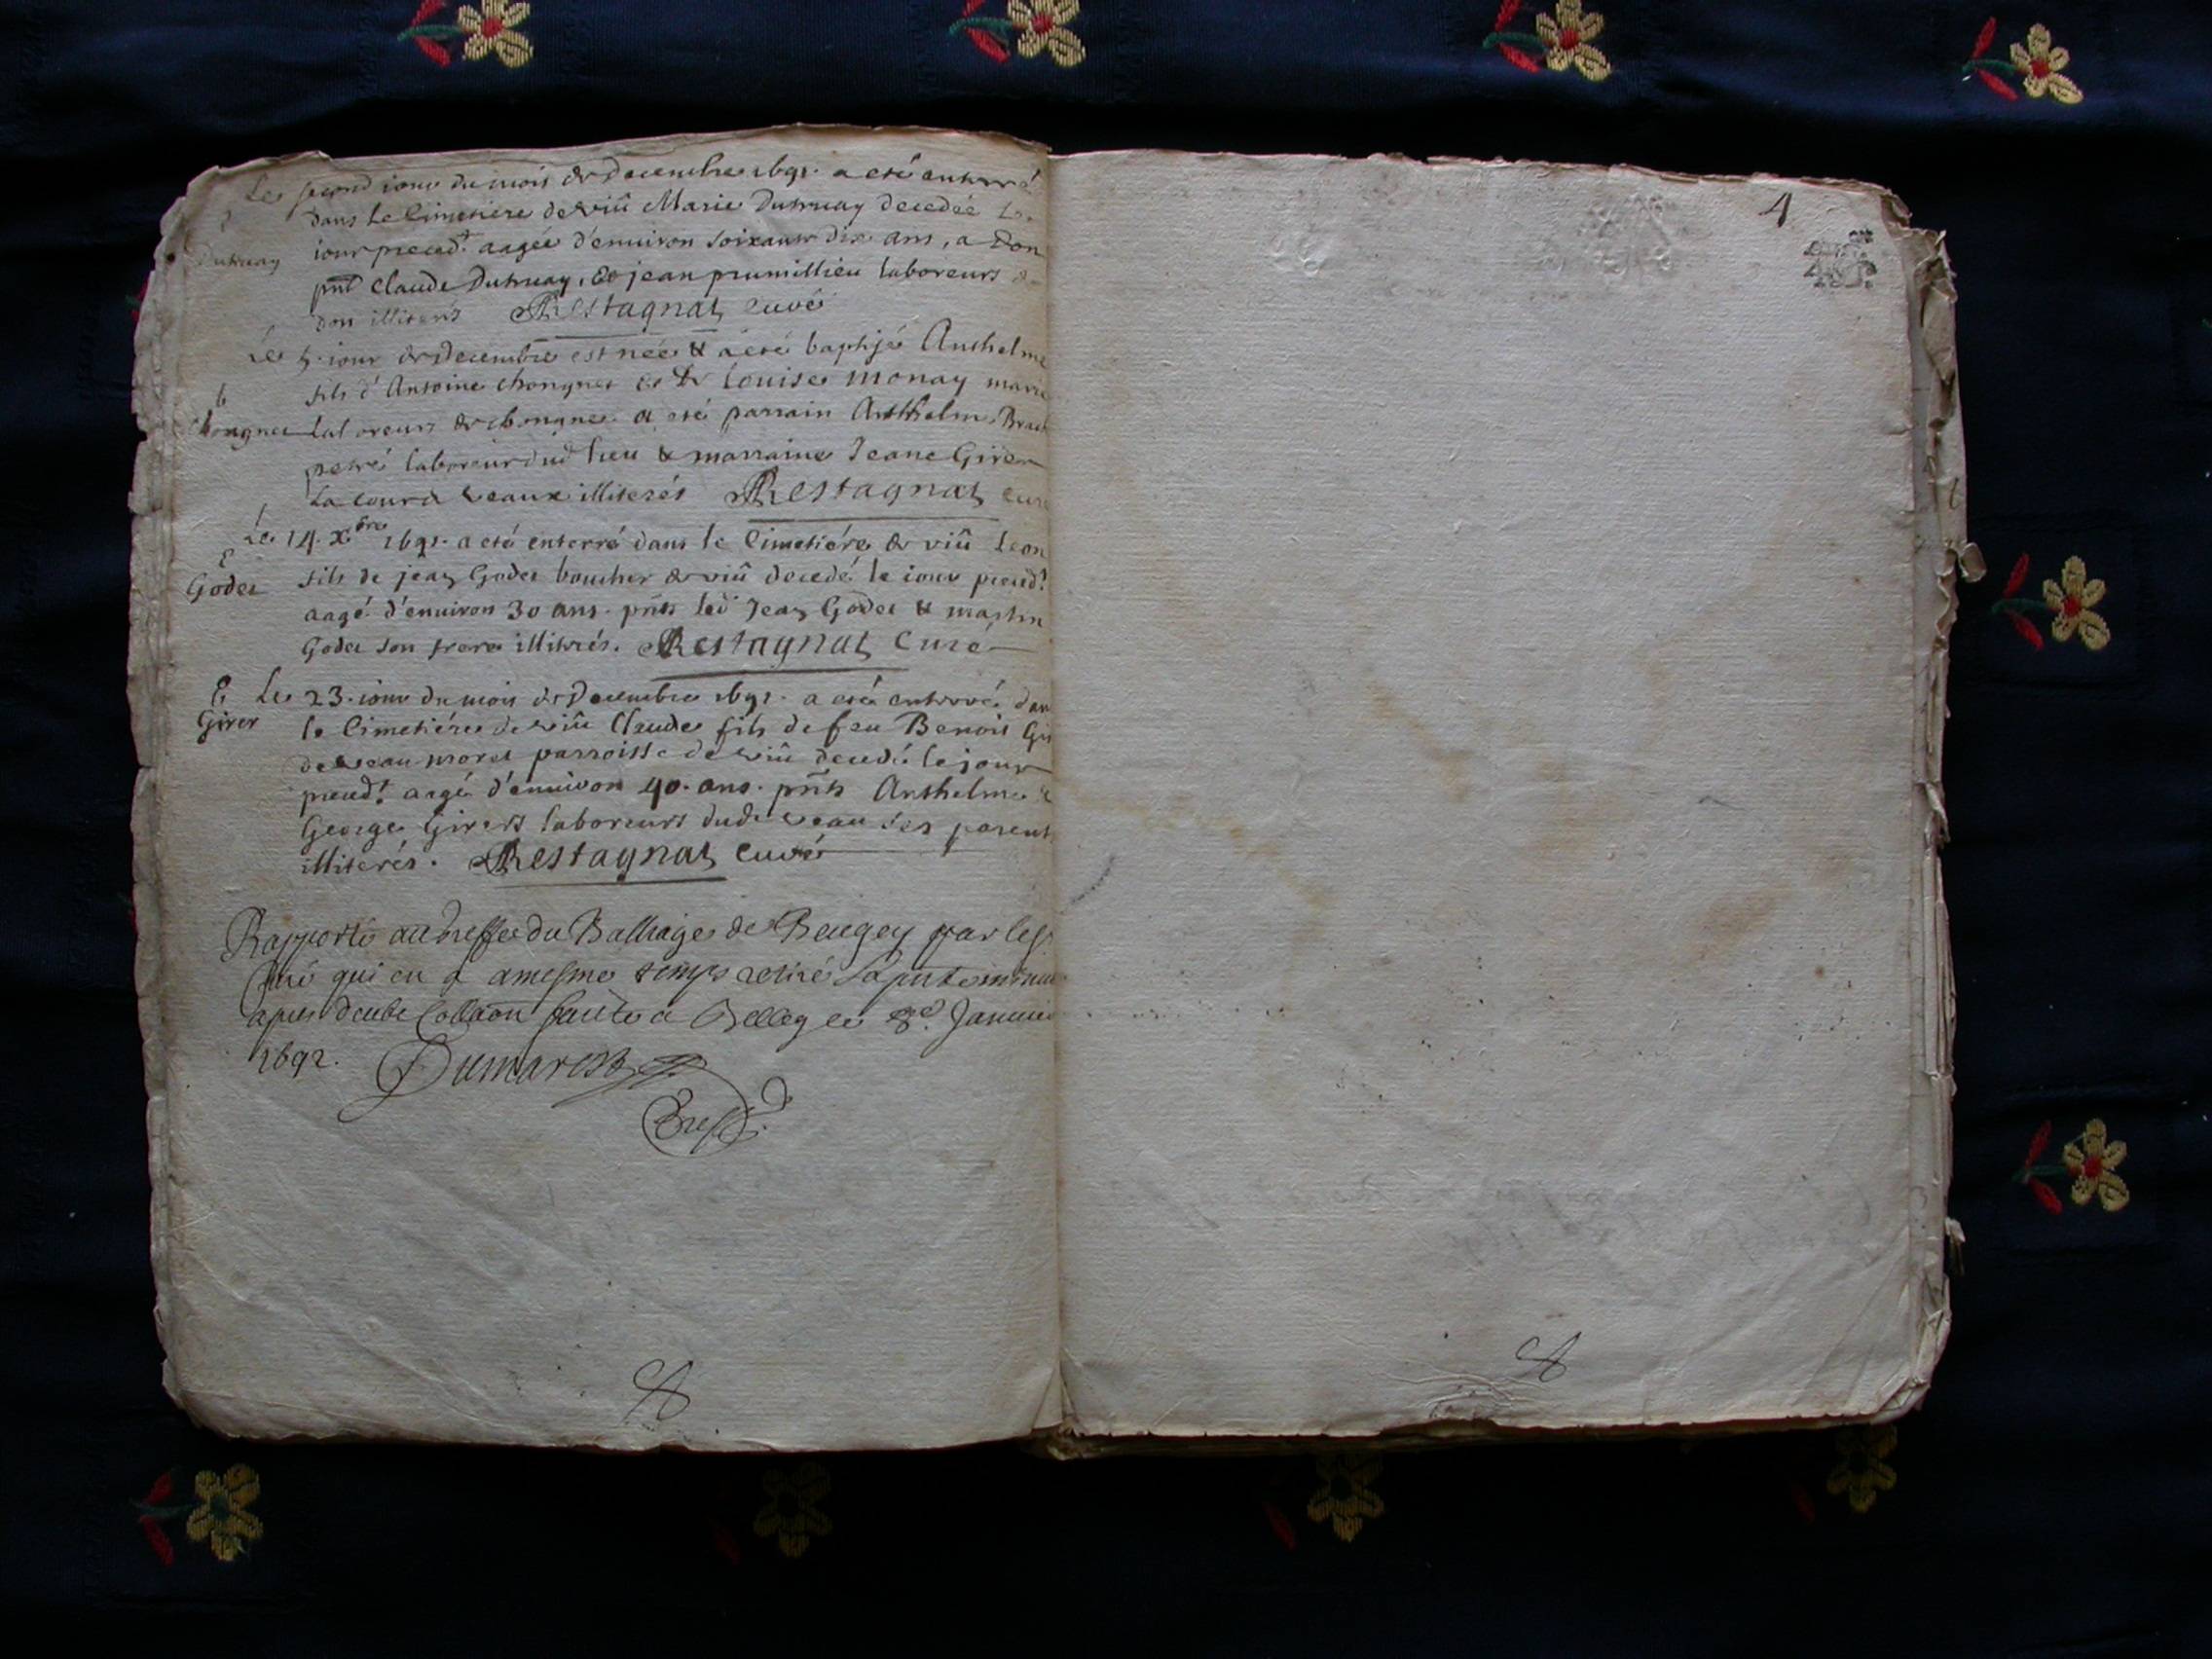 Le second iour du mois de Decembre 1691. a esté enterré
dans le Cimetiére de viû Marie Dutruay decedée le
Dutruay
iour preced.t aagée d'enuiron soixante dix ans, a Don
pñt Claude Dutruay, & jean prumillieu laboreurs
don illiterés Restagnat Curé
Le 5. iour de Decembre est née & a esté baptisé Anthelme
fils d'Antoine chongnes & de Louise Monay marie
b
laboreurs de chongnes. a esté parrain Anthelme
laboreur dud lieu & marraine Jeane Girer
illiterés Restagnat Curé
Le 14. Xbre 1691. a esté enterré dans le Cimetiére de viû Leon
E
Godet
fils de jean Godet boucher de viû decedé le iour preced.t
aagé d'enuiron 30 ans. pñts led Jean Godet & martin
Godet son frere illiterés. Restagnat Curé
E
Girer
Le 23. iour du mois de Decembre 1691. a esté enterré dan
le Cimetiére de viû Claude fils de feu Benoit Gir
de veau moret parroisse de viû decedé le jour
preced.t aagé d'enuiron 40. ans. pñts Anthelme &
George Girers laboreurs dud. veau ses parents
illiterés. Restagnat Curé
Rapporté au Greffe du Balliage de Beugey par led
Curé qui en a amesme temps retiré la pñte minute
apres deube Colla͠on faicte a Belley le 8e. Januier
1692. Dumarest
Greff.
4